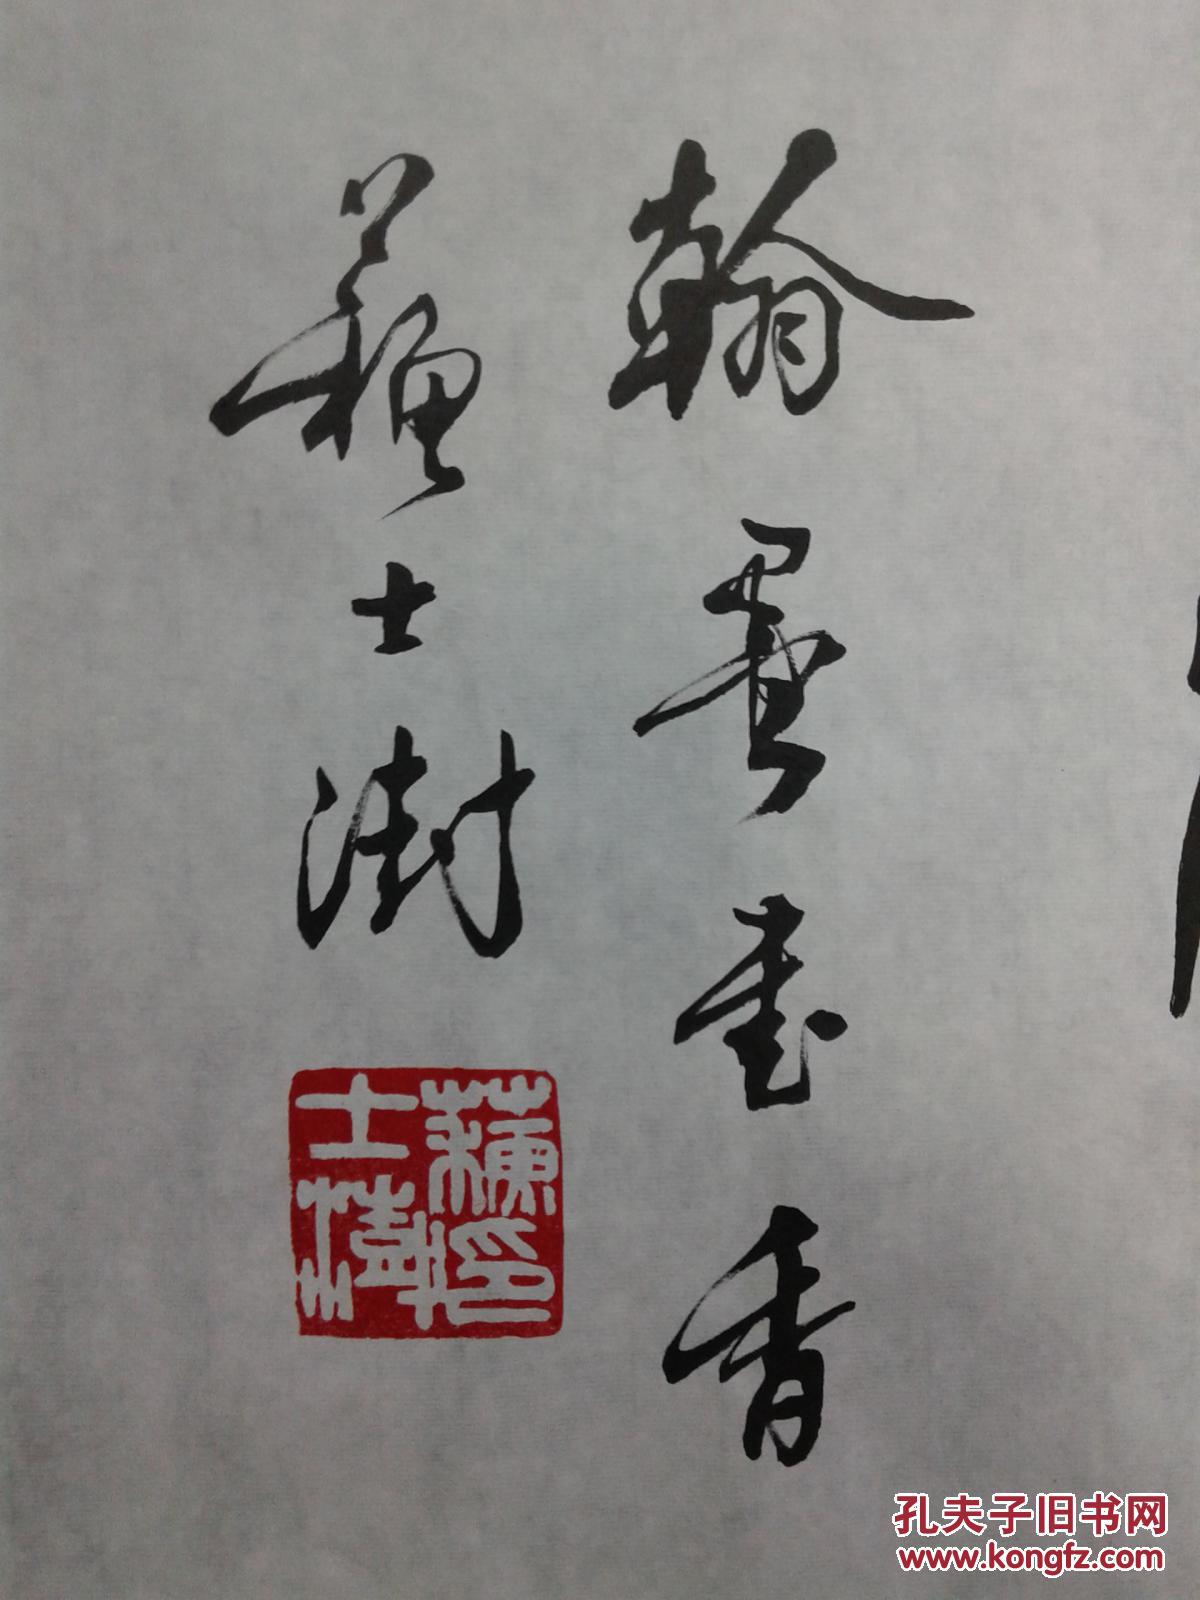 翰墨书香
苏士澍
蘇士澍印
孔夫子旧书网
www.kongfz.com